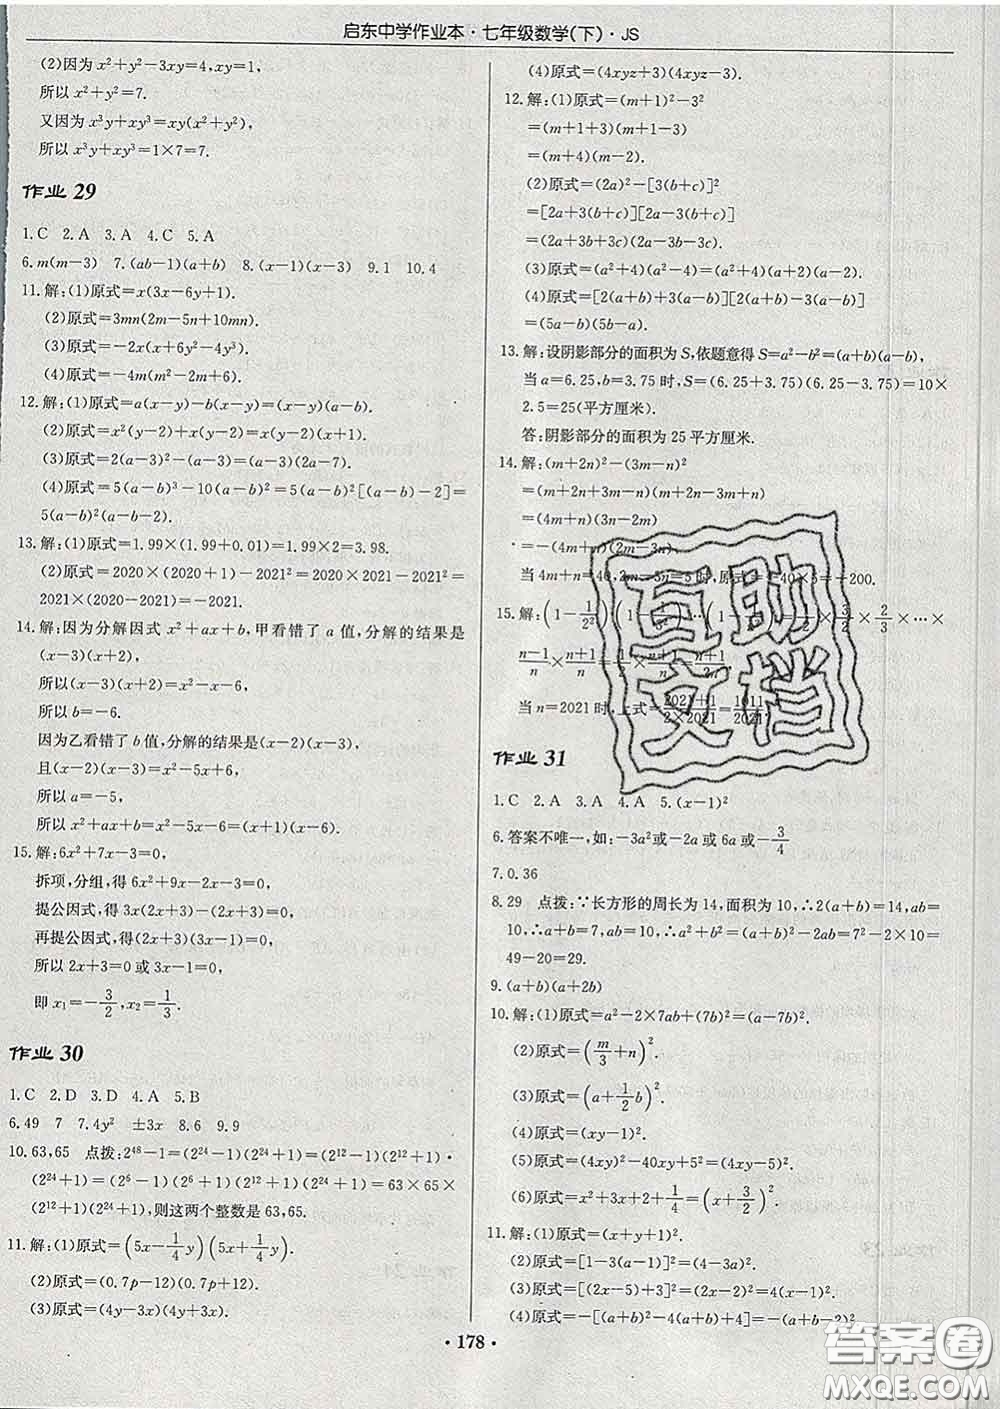 启东中学作业本·七年级数学(下)·JS
(2)因为 x²+y²-3xy=4,xy=1,
所以 x²+y²=7.
又因为 x³y+xy³=xy(x²+y²),
所以 x³y+xy³=1×7=7.
作业 29
1.C 2.A 3.A 4.C 5.A
6.m(m-3) 7.(ab-1)(a+b) 8.(x-1)(x-3) 9.1 10.4
11.解:(1)原式=x(3x-6y+1).
(2)原式=3mn(2m-5n+10mn).
(3)原式=-2x(x+6y²-4y³).
(4)原式=-4m(m²-2m+6).
12.解:(1)原式=a(x-y)-b(x-y)=(x-y)(a-b).
(2)原式=x²(y-2)+x(y-2)=x(y-2)(x+1).
(3)原式=2(a-3)²-(a-3)=(a-3)(2a-7).
(4)原式=5(a-b)³-10(a-b)²=5(a-b)²[(a-b)-2]=
5(a-b)²(a-b-2).
13.解:(1)原式=1.99×(1.99+0.01)=1.99×2=3.98.
(2)原式=2020×(2020+1)-2021²=2020×2021-2021²=
2021×(2020-2021)=-2021.
14.解:因为分解因式 x²+ax+b,甲看错了 a 值,分解的结果是
(x-3)(x+2),
所以(x-3)(x+2)=x²-x-6,
所以 b=-6.
因为乙看错了 b 值,分解的结果是(x-2)(x-3),
且(x-2)(x-3)=x²-5x+6,
所以 a=-5,
所以 x²+ax+b=x²-5x-6=(x+1)(x-6).
15.解:6x²+7x-3=0,
拆项,分组,得 6x²+9x-2x-3=0,
提公因式,得 3x(2x+3)-(2x+3)=0,
再提公因式,得(2x+3)(3x-1)=0,
所以 2x+3=0 或 3x-1=0,
即 x₁=-3/2,x₂=1/3.
作业 30
1.C 2.D 3.D 4.A 5.B
6.49 7 7.4y² ±3x 8.6 9.9
10.63,65 点拨:2⁴⁸-1=(2²⁴-1)(2²⁴+1)=(2¹²-1)(2¹²+1)·
(2²⁴+1)=(2⁶-1)(2⁶+1)(2¹²+1)(2²⁴+1)=63×65×
(2¹²+1)(2²⁴+1),则这两个整数是 63,65.
11.解:(1)原式=(5x-1/4y)(5x+1/4y).
(2)原式=(0.7p-12)(0.7p+12).
(3)原式=(4y-3x)(4y+3x).
(4)原式=(4xyz+3)(4xyz-3).
12.解:(1)原式=(m+1)²-3²
=(m+1+3)(m+1-3)
=(m+4)(m-2).
(2)原式=(2a)²-[3(b+c)]²
=[2a+3(b+c)][2a-3(b+c)]
=(2a+3b+3c)(2a-3b-3c).
(3)原式=(a²+4)(a²-4)=(a²+4)(a+2)(a-2).
(4)原式=[2(a+b)+3(a-b)][2(a+b)-3(a-b)]
=(5a-b)(5b-a).
13.解:设阴影部分的面积为 S,依题意得 S=a²-b²=(a+b)(a-b),
当 a=6.25,b=3.75 时,S=(6.25+3.75)(6.25-3.75)=10×
2.5=25(平方厘米).
答:阴影部分的面积为 25 平方厘米.
14.解:(m+2n)²-(3m-n)²
=(m+2n+3m-n)(m+2n-3m+n)
=(4m+n)(3n-2m)
=-(4m+n)(2m-3n).
当 4m+n=40,2m-3n=5 时,原式=-40×5=-200.
15.解:(1-1/2²)(1-1/3²)…(1-1/n²)=1/2×3/2×2/3×…×
(n-1)/n×(n+1)/n=1/2×(n+1)/n=(n+1)/2n.
当 n=2021 时,上式=(2021+1)/(2×2021)=1011/2021.
互助
文档
作业 31
1.C 2.A 3.A 4.A 5.(x-1)²
6.答案不唯一,如:-3a²或-2a 或 6a 或-3/4
7.0.36
8.29 点拨:∵长方形的周长为 14,面积为 10,∴2(a+b)=14,ab=
10,∴a+b=7,ab=10,∴a²+b²=(a+b)²-2ab=7²-2×10=
49-20=29.
9.(a+b)(a+2b)
10.解:(1)原式=a²-2×7ab+(7b)²=(a-7b)².
(2)原式=(m/3+n)².
(3)原式=(a+1/2b)².
(4)原式=(xy-1)².
(5)原式=(4xy)²-40xy+5²=(4xy-5)².
(6)原式=x²+3x+2+1/4=(x+3/2)².
11.解:(1)原式=(x+y+1)².
(2)原式=[1-3(a-1)]²=(4-3a)².
(3)原式=[(2x-5)+3]²=(2x-2)²=4(x-1)².
(4)原式=-[(a+b)²-4(a+b)+4]=-(a+b-2)².
·178·
答案圈
MXQE.COM